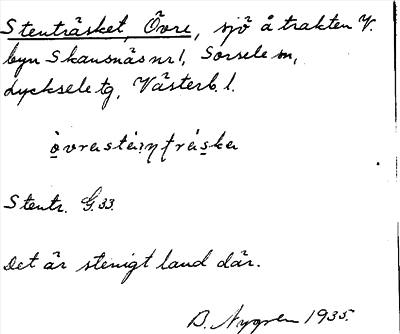 Stenträsket, Övre, sjö å trakten V.
byn Skansnäs nr 1, Sorsele sn,
Lycksele tg, Västerb. l.
Stentr. G. 33.
Det är stenigt land där.
D. Nygren 1935.